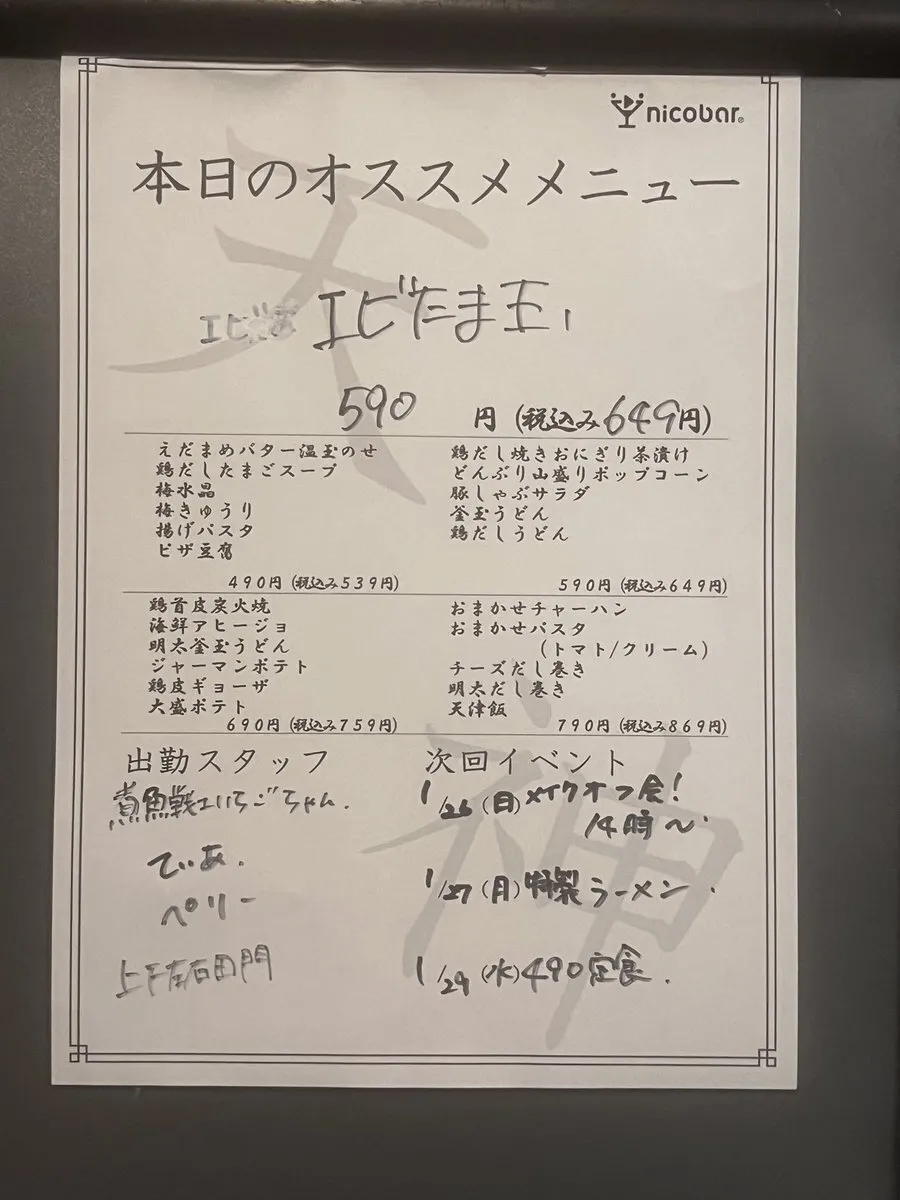 nicobar®
本日のオススメメニュー
エビたま玉
590 円 (税込み649円)
えだまめバター温玉のせ
鶏だしたまごスープ
梅水晶
梅きゅうり
揚げパスタ
ピザ豆腐
490円 (税込み539円)
鶏だし焼きおにぎり茶漬け
どんぶり山盛りポップコーン
豚しゃぶサラダ
釜玉うどん
鶏だしうどん
590円 (税込み649円)
鶏首皮炭火焼
海鮮アヒージョ
明太釜玉うどん
ジャーマンポテト
鶏皮ギョーザ
大盛ポテト
690円 (税込み759円)
おまかせチャーハン
おまかせパスタ
(トマト/クリーム)
チーズだし巻き
明太だし巻き
天津飯
790円 (税込み869円)
出勤スタッフ
煮魚戦エいちごちゃん.
てぃあ.
ペリー
上下左右田門
次回イベント
1/26 (日) メイクオフ会!
14時~
1/27 (月) 特製ラーメン.
1/29 (水) 490定食.
天神